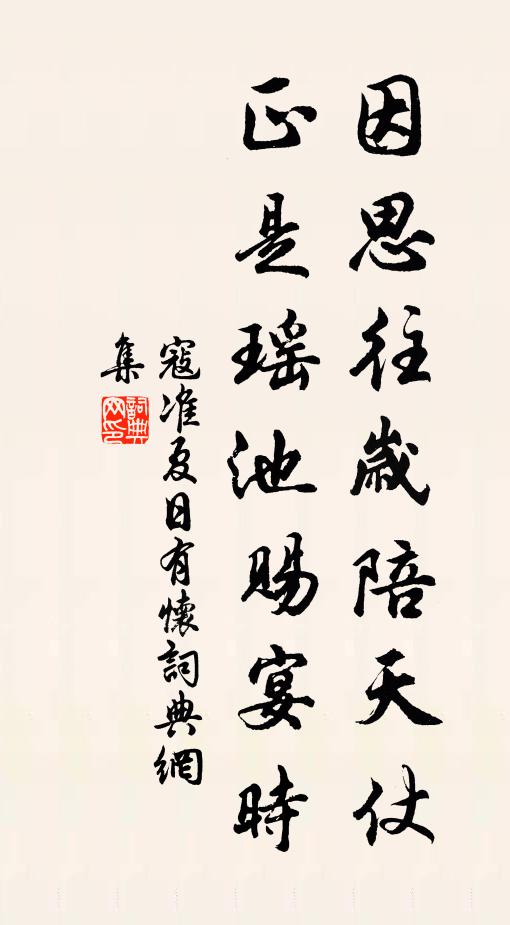 因思往歲陪天仗
正是瑶池賜宴時
寇准夏日有懷詞典網
集
詞典
网印